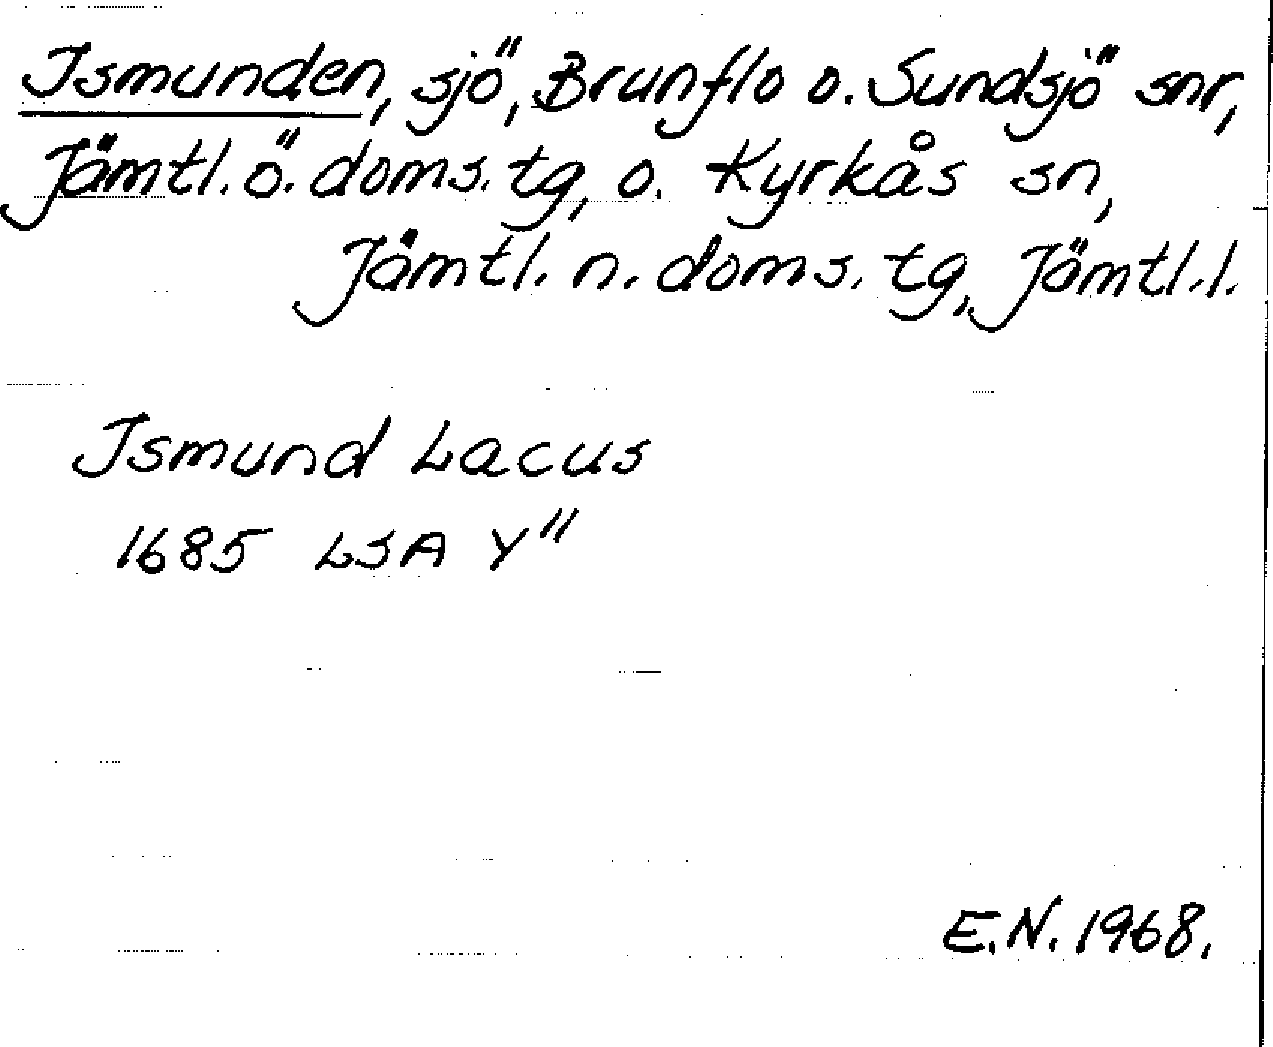 Ismunden, sjö, Brunflo o. Sundsjö snr,
Jämtl. ö. doms. tg, o. Kyrkås sn,
Jämtl. n. doms. tg, Jämtl. l.
Ismund Lacus
1685 LSA Y"
E.N. 1968.